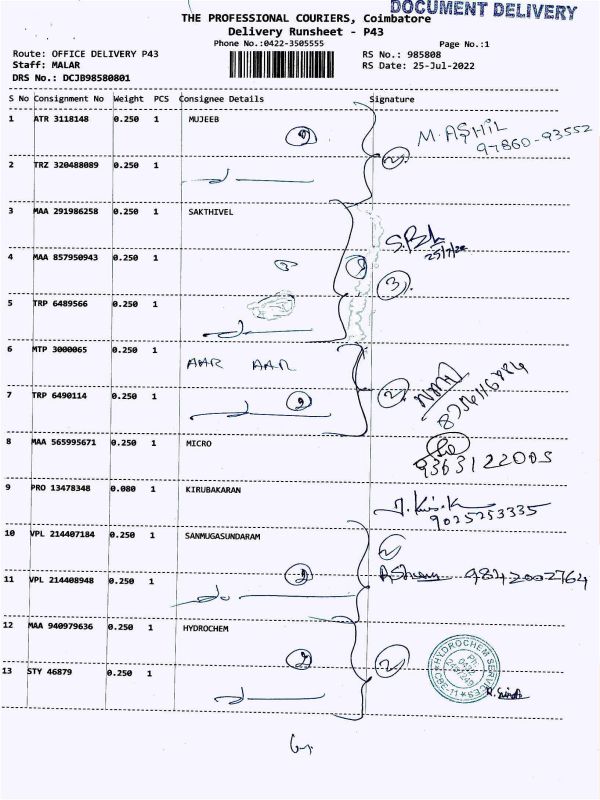 DOCUMENT DELIVERY
THE PROFESSIONAL COURIERS, Coimbatore
Delivery Runsheet - P43
Phone No.:0422-3505555
Page No.:1
Route: OFFICE DELIVERY P43
RS No.: 985808
Staff: MALAR
RS Date: 25-Jul-2022
DRS No.: DCJB98580801
S No Consignment No Weight PCS Consignee Details Signature
1 ATR 3118148 0.250 1 MUJEEB
M. ASHIL
97860-93552
2
2
2 TRZ 320488089 0.250 1
3 MAA 291986258 0.250 1 SAKTHIVEL
25/7/22
4 MAA 857950943 0.250 1
3
5 TRP 6489566 0.250 1
6 MTP 3000065 0.250 1 AAR AAR
7 TRP 6490114 0.250 1
2
2
8 MAA 565995671 0.250 1 MICRO
9363122005
9 PRO 13478348 0.080 1 KIRUBAKARAN
9025253335
10 VPL 214407184 0.250 1 SANMUGASUNDARAM
2
11 VPL 214408948 0.250 1
2
9842002764
12 MAA 940979636 0.250 1 HYDROCHEM
2
2
HYDROCHEM SERVICES
CBE-11
13 STY 46879 0.250 1